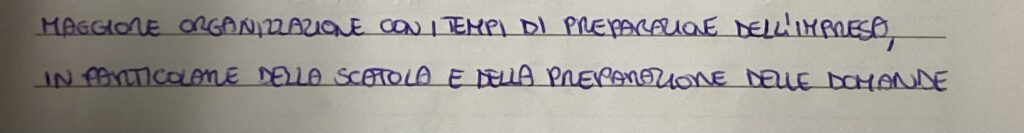 MAGGIORE ORGANIZZAZIONE CON I TEMPI DI PREPARAZIONE DELL'IMPRESA,
IN PARTICOLARE DELLA SCATOLA E DELLA PREPARAZIONE DELLE DOMANDE